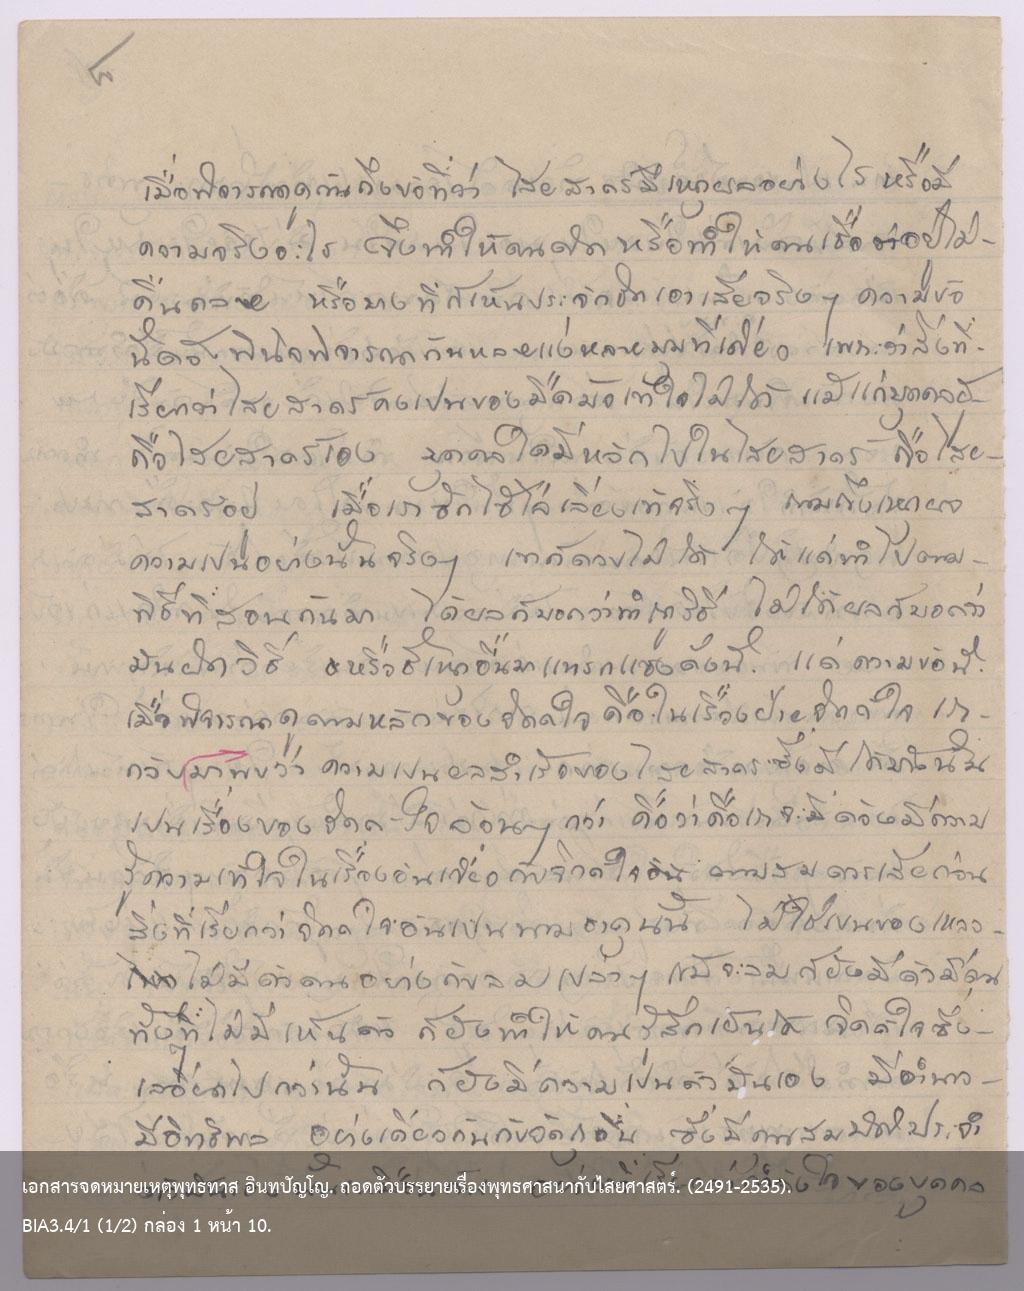 ๖
เมื่อพิจารณาดูกันถึงข้อที่ว่า ไสยสาตร์มีเหตุผลอย่างไร หรือมี
ความจริงอะไร จึงทำให้คนติด หรือทำให้คนเชื่อ อยู่ไม่-
คืนคลาย หรือบางทีก็เห็นประจักษ์เอาเสียจริงๆ ความข้อ
นี้ต้องพินิจพิจารณากันหลายแง่หลายมุมทีเดียว เพราะว่าสิ่งที่-
เรียกว่าไสยสาตร์คงเป็นของมืดมัวเข้าใจไม่ได้ แม้แก่บุคคลผู้-
ถือไสยสาตร์เอง บุคคลใดมีหลักไปในไสยสาตร์ ถือไสย-
สาตร์อยู่ เมื่อเราซักไซ้ไล่เลียงเข้าจริงๆ ถามถึงเหตุผล
ความเป็นอย่างนั้นจริงๆ เขาก็ตอบไม่ได้ ได้แต่ทำไปตาม-
พิธีที่สอนกันมา ได้ผลก็บอกว่าทำถูกวิธี ไม่ได้ผลก็บอกว่า
มันผิดวิธี หรือมีเหตุอื่นมาแทรกแซงดังนี้. แต่ความข้อนี้.
เมื่อพิจารณาดูตามหลักของจิตต์ใจ คือในเรื่องฝ่ายจิตต์ใจ เรา-
กลับมาพบว่า ความเป็นผลสำเร็จของไสยสาตร์ ซึ่งมีได้มานั้น
เป็นเรื่องของจิตต์ใจล้วนๆ กว่า คือว่าคือเราจะมีต้องมีความ
รู้ความเข้าใจในเรื่องอันเกี่ยวกับจิตต์ใจอัน ตามสมควรเสียก่อน
สิ่งที่เรียกว่าจิตต์ใจอันเป็นนามธาตุนั้น ไม่ใช่เป็นของเหลว-
ไม่มีตัวตนอย่างกับลมเปล่าๆ แม้จะลมก็ยังมีตัวมีตน
ทั้งที่ไม่มีเห็นตัว ก็ยังทำให้คนรู้สึกเย็นได้ จิตต์ใจซึ่ง-
เลอียดไปกว่านั้น ก็ยังมีความเป็นตัวมันเอง มีอำนาจ-
มีอิทธิพล อย่างเดียวกันกับวัตถุอื่น ซึ่งมีคนสมบัติประจำ
ใจของบุคคล
เอกสารจดหมายเหตุพุทธทาส อินทปัญโญ. ถอดตัวบรรยายเรื่องพุทธศาสนากับไสยศาสตร์. (2491-2535).
BIA3.4/1 (1/2) กล่อง 1 หน้า 10.